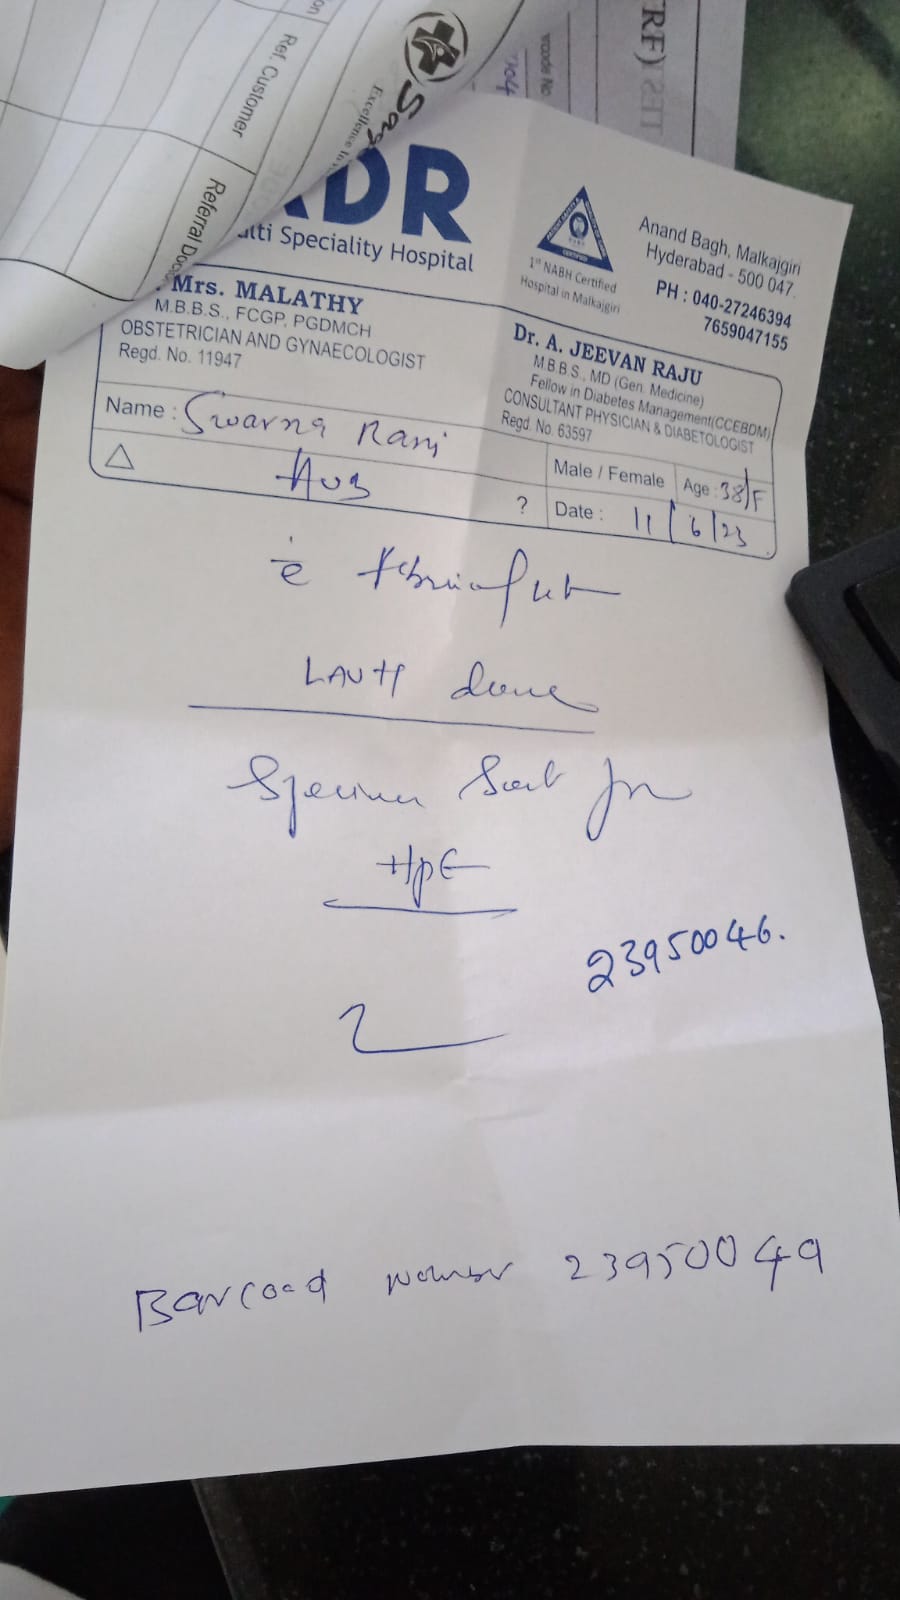 Ref. Customer
Referral Doc
Excellence In
Sag
rcode No
TRF)
DR
ulti Speciality Hospital
1st NABH Certified
Hospital in Malkajgiri
Anand Bagh, Malkajgiri
Hyderabad - 500 047.
PH : 040-27246394
7659047155
Mrs. MALATHY
M.B.B.S., FCGP, PGDMCH
OBSTETRICIAN AND GYNAECOLOGIST
Regd. No. 11947
Dr. A. JEEVAN RAJU
M.B.B.S., MD (Gen. Medicine)
Fellow in Diabetes Management(CCEBDM)
CONSULTANT PHYSICIAN & DIABETOLOGIST
Regd. No. 63597
Name : Swarna Rani
Male / Female Age : 38/F
△ AUB ?
Date : 11/6/23
c̄
LAVH done
Specimen Sent for
HPE
23950046.
Barcoad 23950049